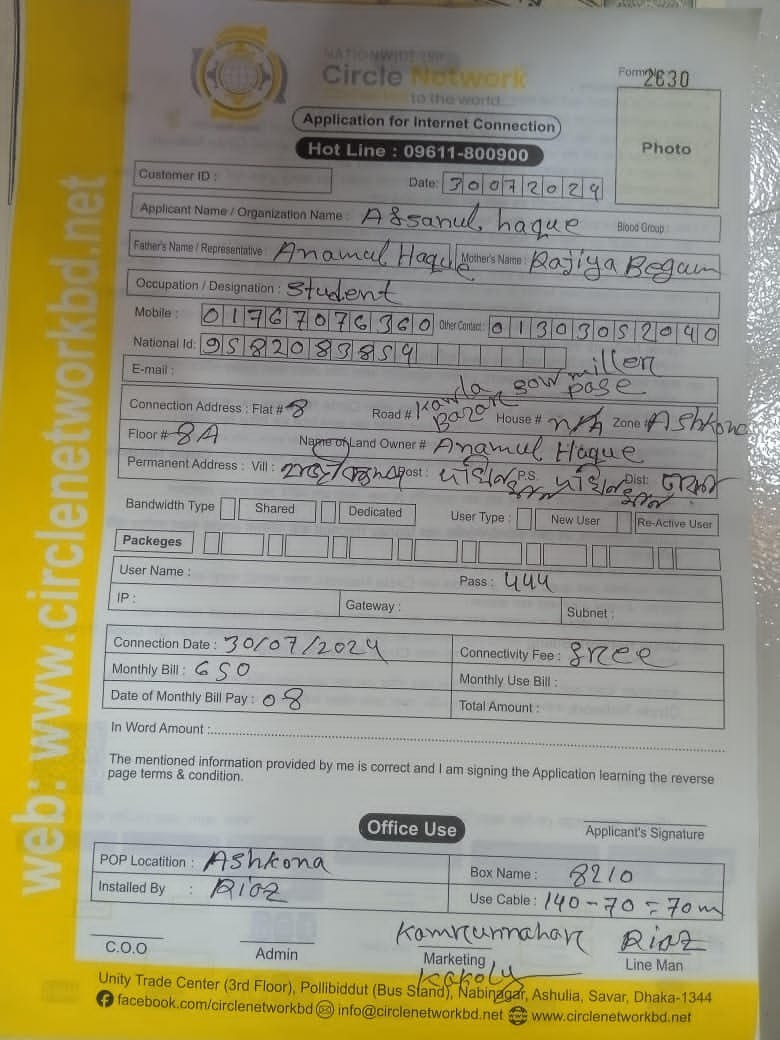 NATIONWIDE ISP
Circle Network
to the world
Form 2630
Application for Internet Connection
Hot Line : 09611-800900
Photo
Customer ID :
Date: 30072024
Applicant Name / Organization Name : Ahsanul haque Blood Group :
Father's Name / Representative : Anamul Haque Mother's Name : Rajiya Begum
Occupation / Designation : Student
Mobile : 01767076360 Other Contact : 01303052040
National Id: 9582083859
E-mail :
Connection Address : Flat # 8 Road # Kawla Bazar House # n/A Zone Ashkona
Floor # 8A Name of Land Owner # Anamul Haque
Permanent Address : Vill : Post : P.S. Dist:
Bandwidth Type Shared Dedicated User Type : New User Re-Active User
Packeges
User Name : Pass : 444
IP : Gateway : Subnet :
Connection Date : 30/07/2024 Connectivity Fee : free
Monthly Bill : 650 Monthly Use Bill :
Date of Monthly Bill Pay : 08 Total Amount :
In Word Amount :
The mentioned information provided by me is correct and I am signing the Application learning the reverse
page terms & condition.
Office Use
Applicant's Signature
POP Locatition : Ashkona Box Name : 8210
Installed By : Riaz Use Cable : 140-70=70m
Kamrunnahar Riaz
C.O.O Admin Marketing Line Man
Kakoly
Unity Trade Center (3rd Floor), Pollibiddut (Bus Stand), Nabinagar, Ashulia, Savar, Dhaka-1344
facebook.com/circlenetworkbd info@circlenetworkbd.net www.circlenetworkbd.net
web: www.circlenetworkbd.net